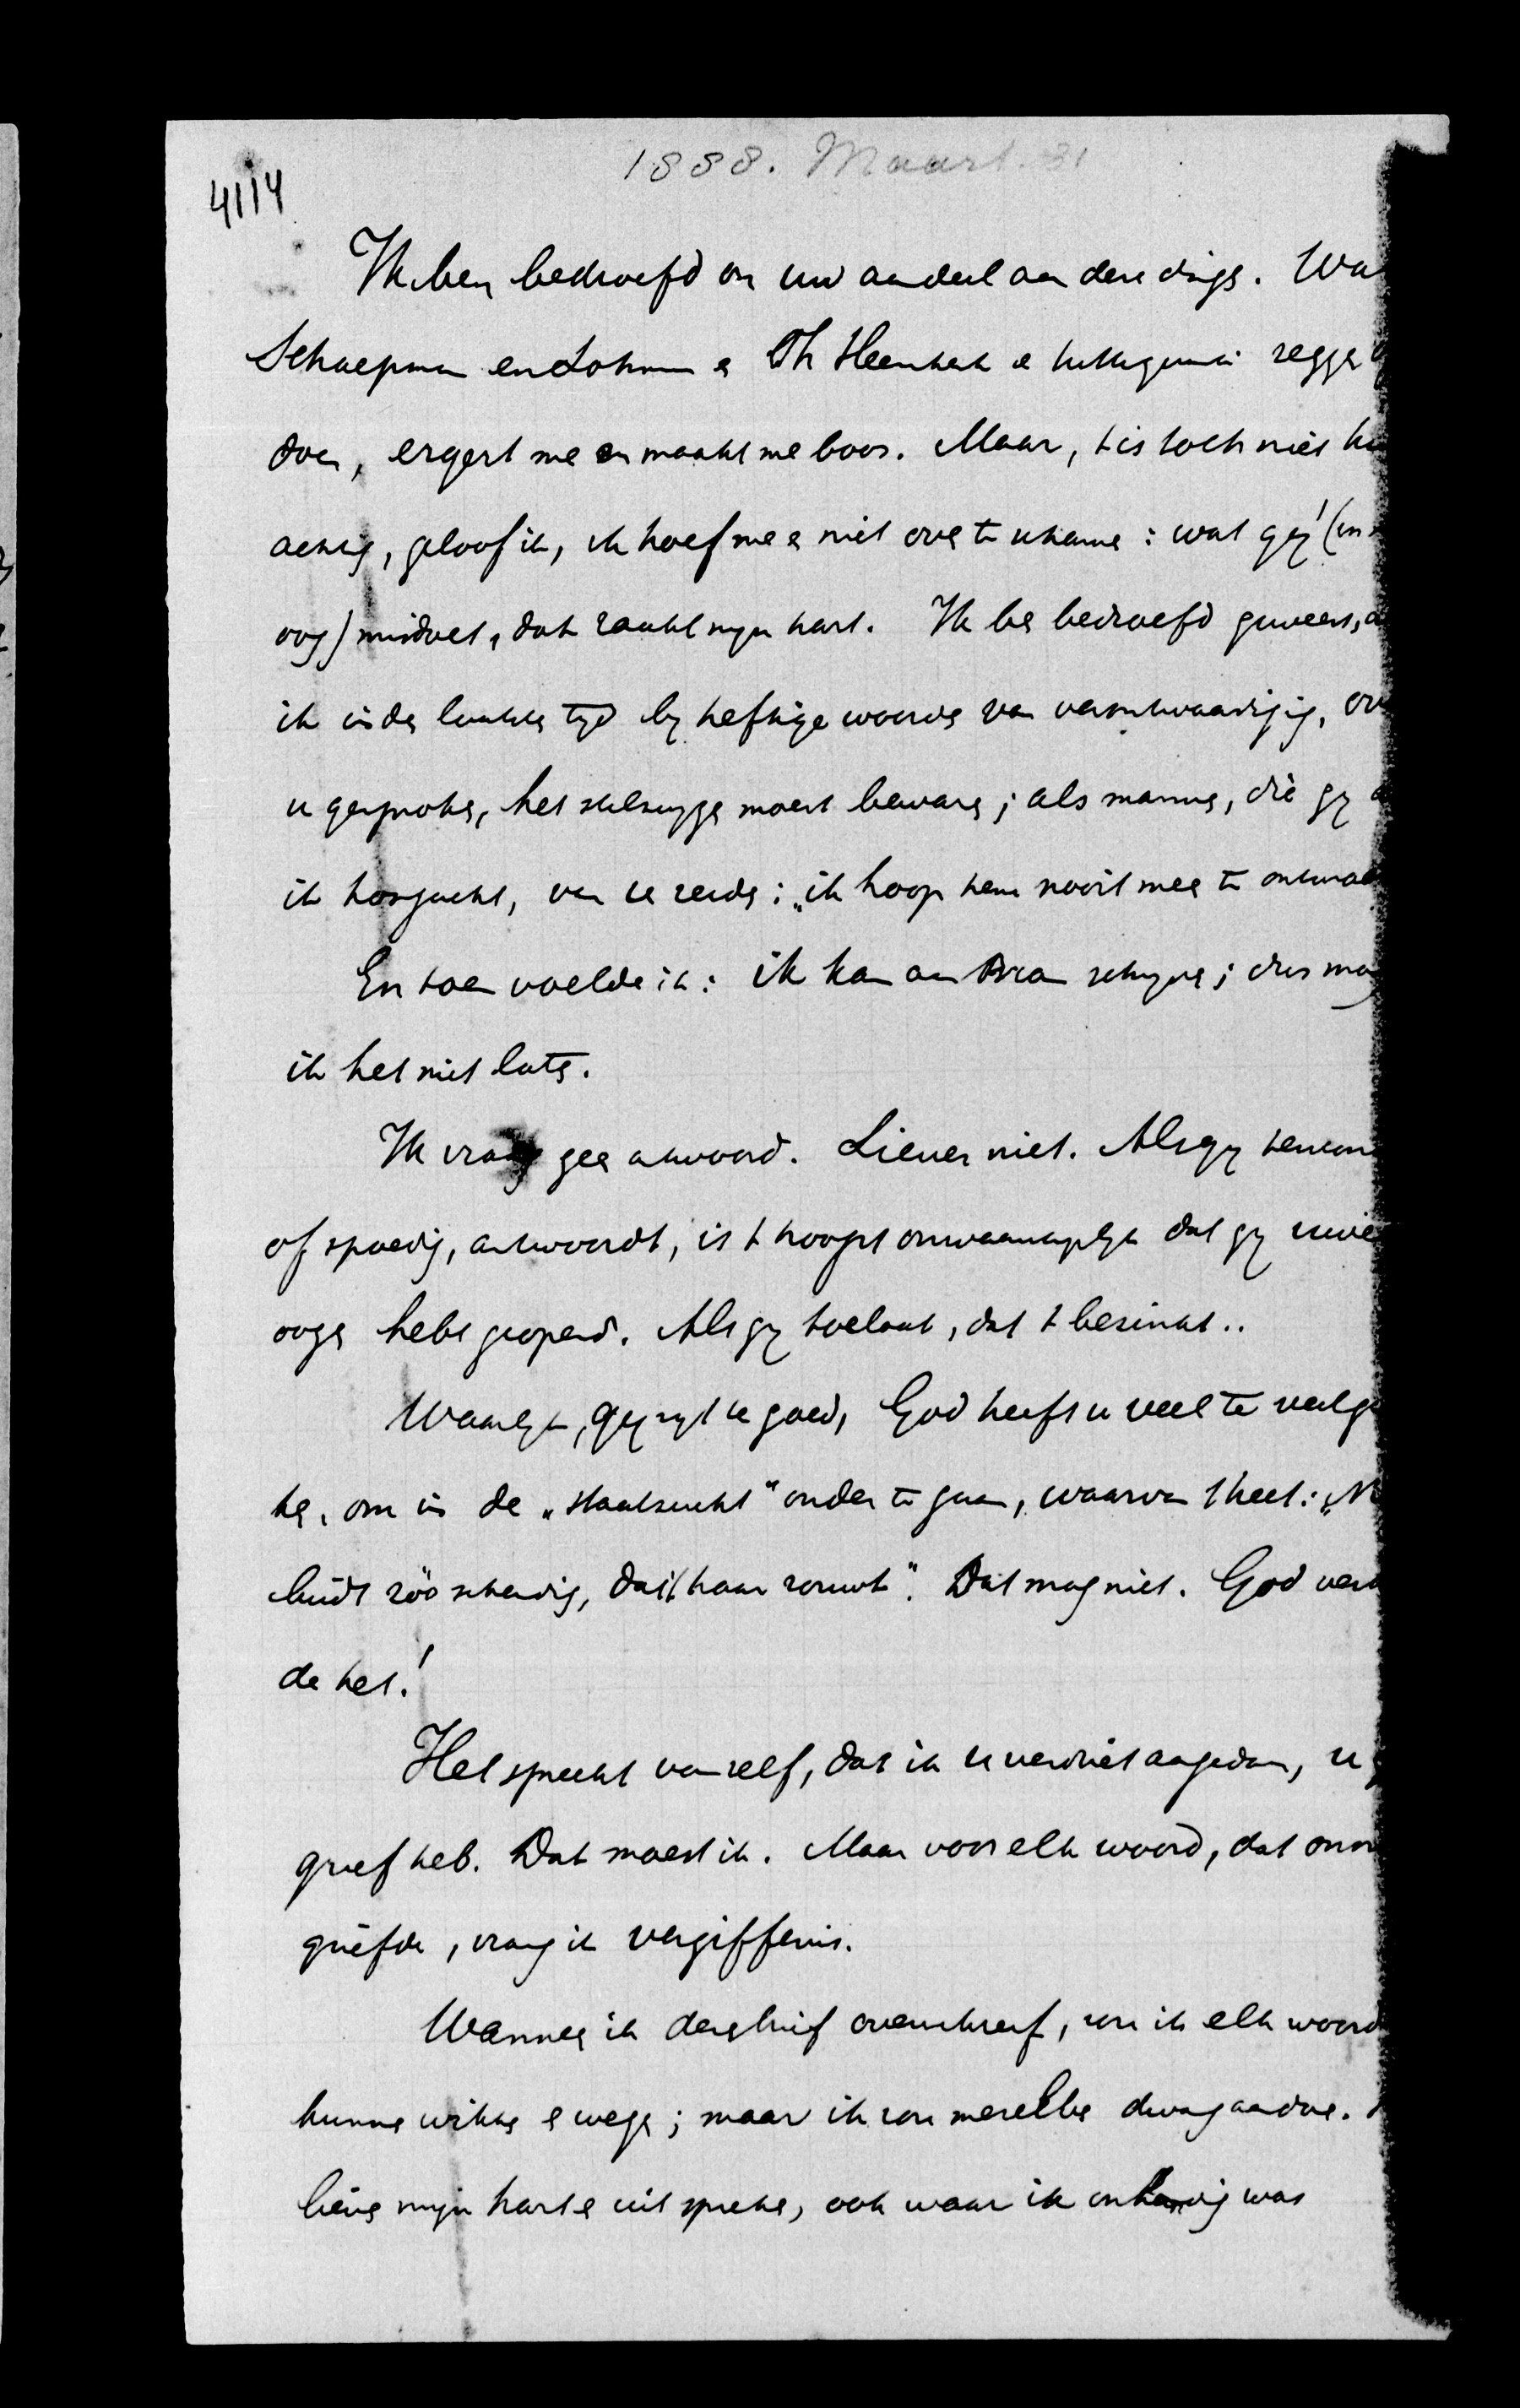 1888. Maart. 31
4114
Ik ben bedroefd om uw aandeel aan deze dinge. Wa
Schaepman en Lohman e Th Heemskerk e zegge
doen, ergert me en maakt me boos. Maar, t is toch niet
geloof ik, ik hoef me e niet over te schame: wat gij (in
oog) misdoet, dat raakt mijn hart. Ik be bedroefd geweest,
ik in de laatste tijd bij heftige woorde van verontwaardigig, ov
u gesproke, het stilzwijge moest beware; als manne, die gij
ik hoogacht, van u zeide: „ik hoop hem nooit mee te ontmoe
En toen voelde ik: ik kan aan Bram schrijve; dus mag
ik het niet late.
Ik vraag gee antwoord. Liever niet. Als gij
of spoedig, antwoordt, is t hoogst onwaarschijnlijk dat gij uwe
ooge hebt geopend. Als gij toelaat, dat t bezinkt..
Waarlijk, gij zijt te goed, God heeft u veel te veel ge
ke, om in de „staatzucht" onder te gaan, waarvan t heet: „N
luidt zóó schendig, dat haar rouwt". Dat mag niet. God
de het!
Het spreekt van zelf, dat ik u verdriet aangedaan, u g
grief heb. Dat moest ik. Maar voor elk woord, dat onn
griefde, vraag ik vergiffenis.
Wannee ik deze brief overschreef, zou ik elk woord
kunne wikke e wege; maar ik zou mezelve dwang aandoe.
lieve mijn harte uit spreke, ook waar ik onhandig was